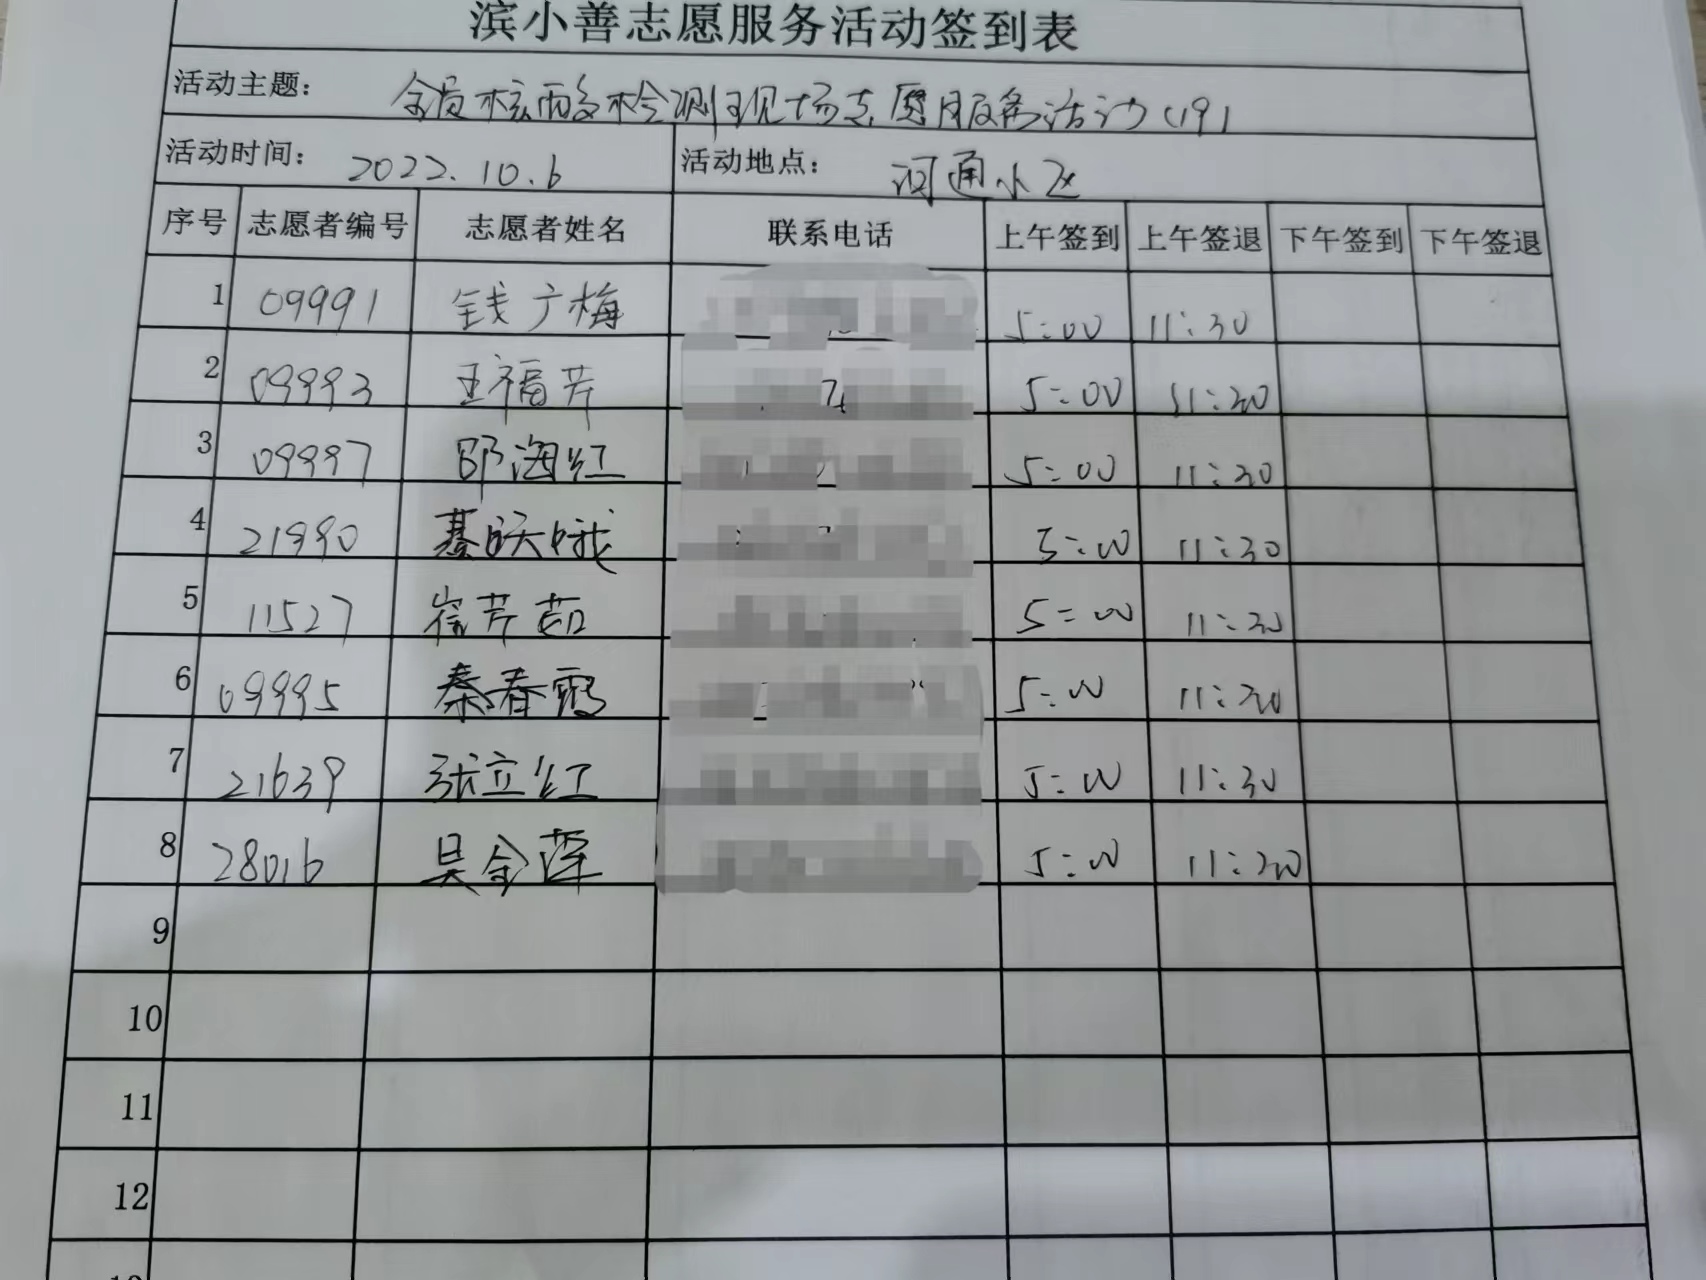 滨小善志愿服务活动签到表
活动主题： 全员核酸检测现场志愿服务活动（19）
活动时间： 2022.10.6 活动地点： 河通小区
序号 志愿者编号 志愿者姓名 联系电话 上午签到 上午签退 下午签到 下午签退
1 09991 钱广梅 5:00 11:30
2 09993 王福芹 5:00 11:30
3 09997 邵海红 5:00 11:30
4 21990 5:00 11:30
5 11527 崔芹茹 5:00 11:30
6 09995 秦春霞 5:00 11:30
7 21639 张立红 5:00 11:30
8 28016 吴金莲 5:00 11:30
9
10
11
12